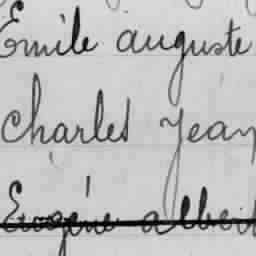 Emile auguste
Charles Jean
Eugène albert